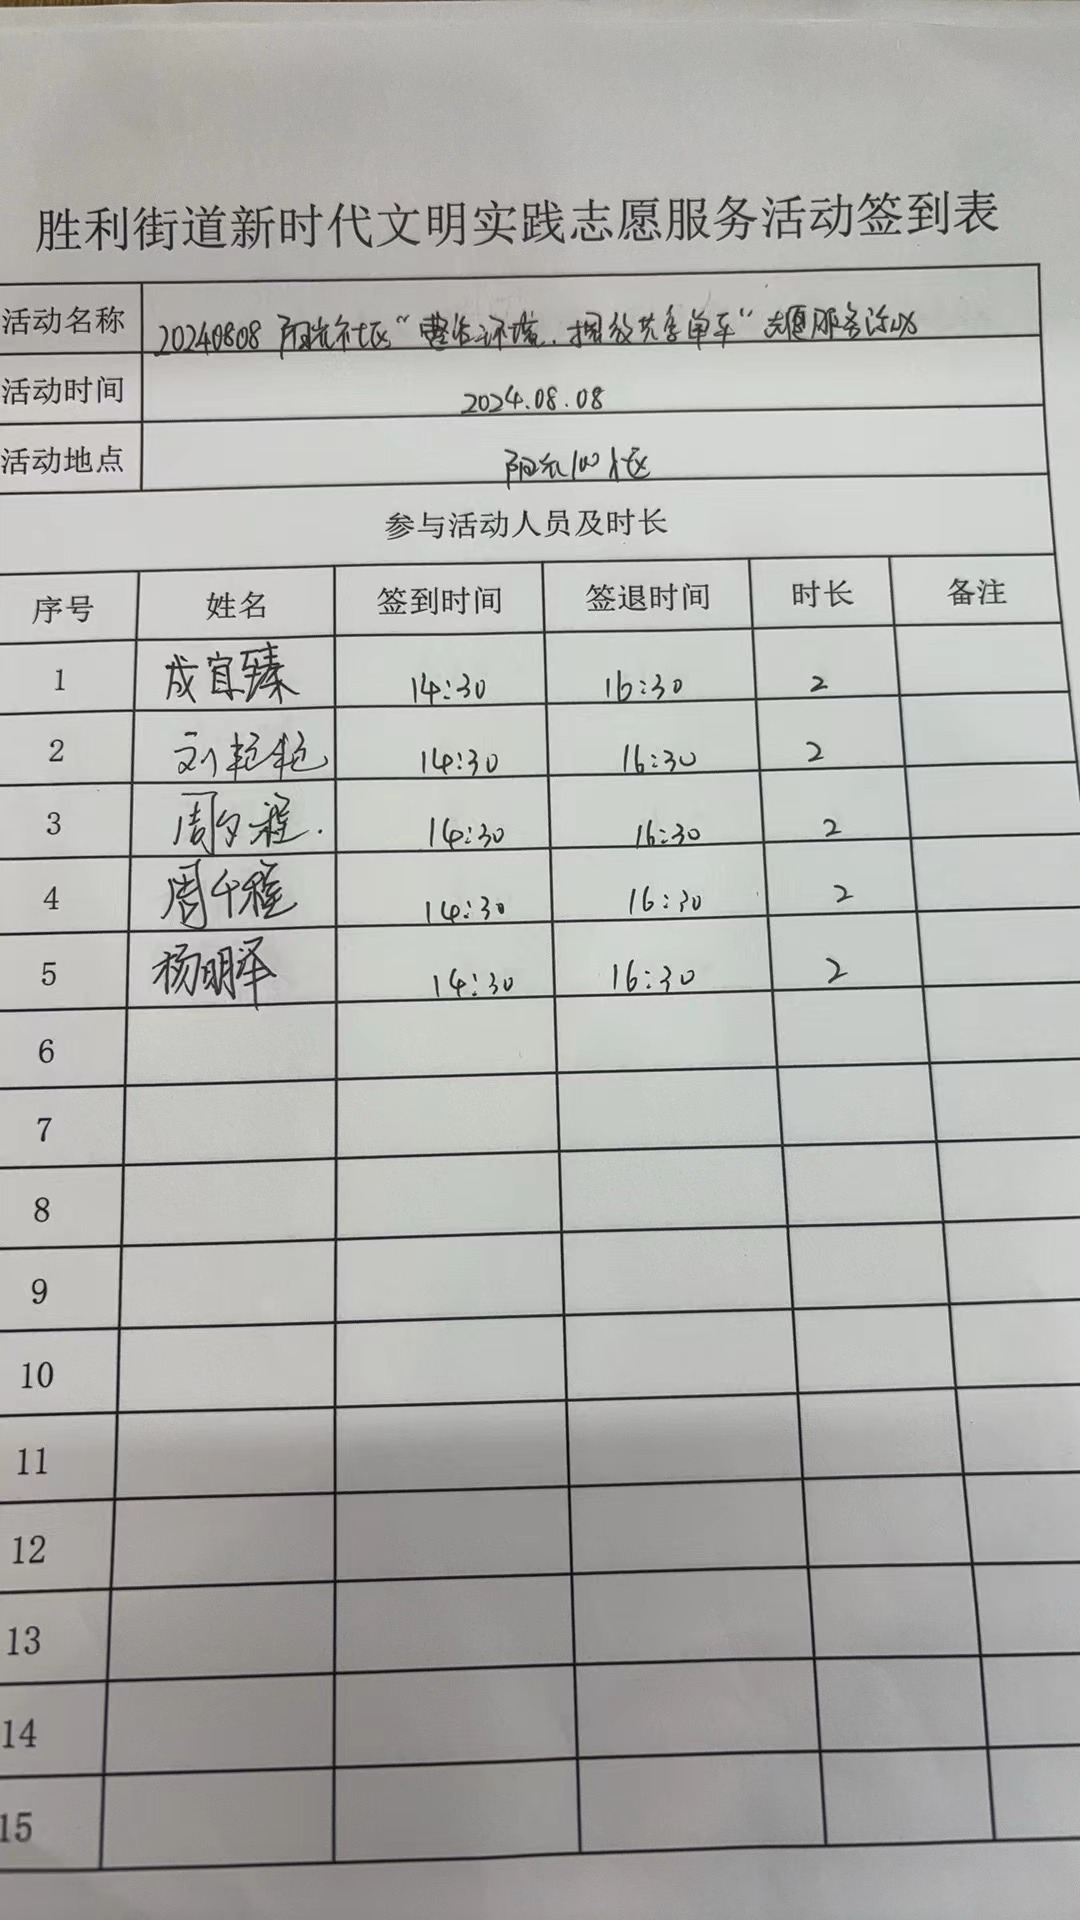 胜利街道新时代文明实践志愿服务活动签到表
活动名称 20240808 阳光社区“整治环境,摆放共享单车”志愿服务活动
活动时间 2024.08.08
活动地点 阳光100社区
参与活动人员及时长
序号 姓名 签到时间 签退时间 时长 备注
1 成宜臻 14:30 16:30 2
2 刘艳艳 14:30 16:30 2
3 周夕程. 14:30 16:30 2
4 周千程 14:30 16:30 2
5 杨明泽 14:30 16:30 2
6
7
8
9
10
11
12
13
14
15